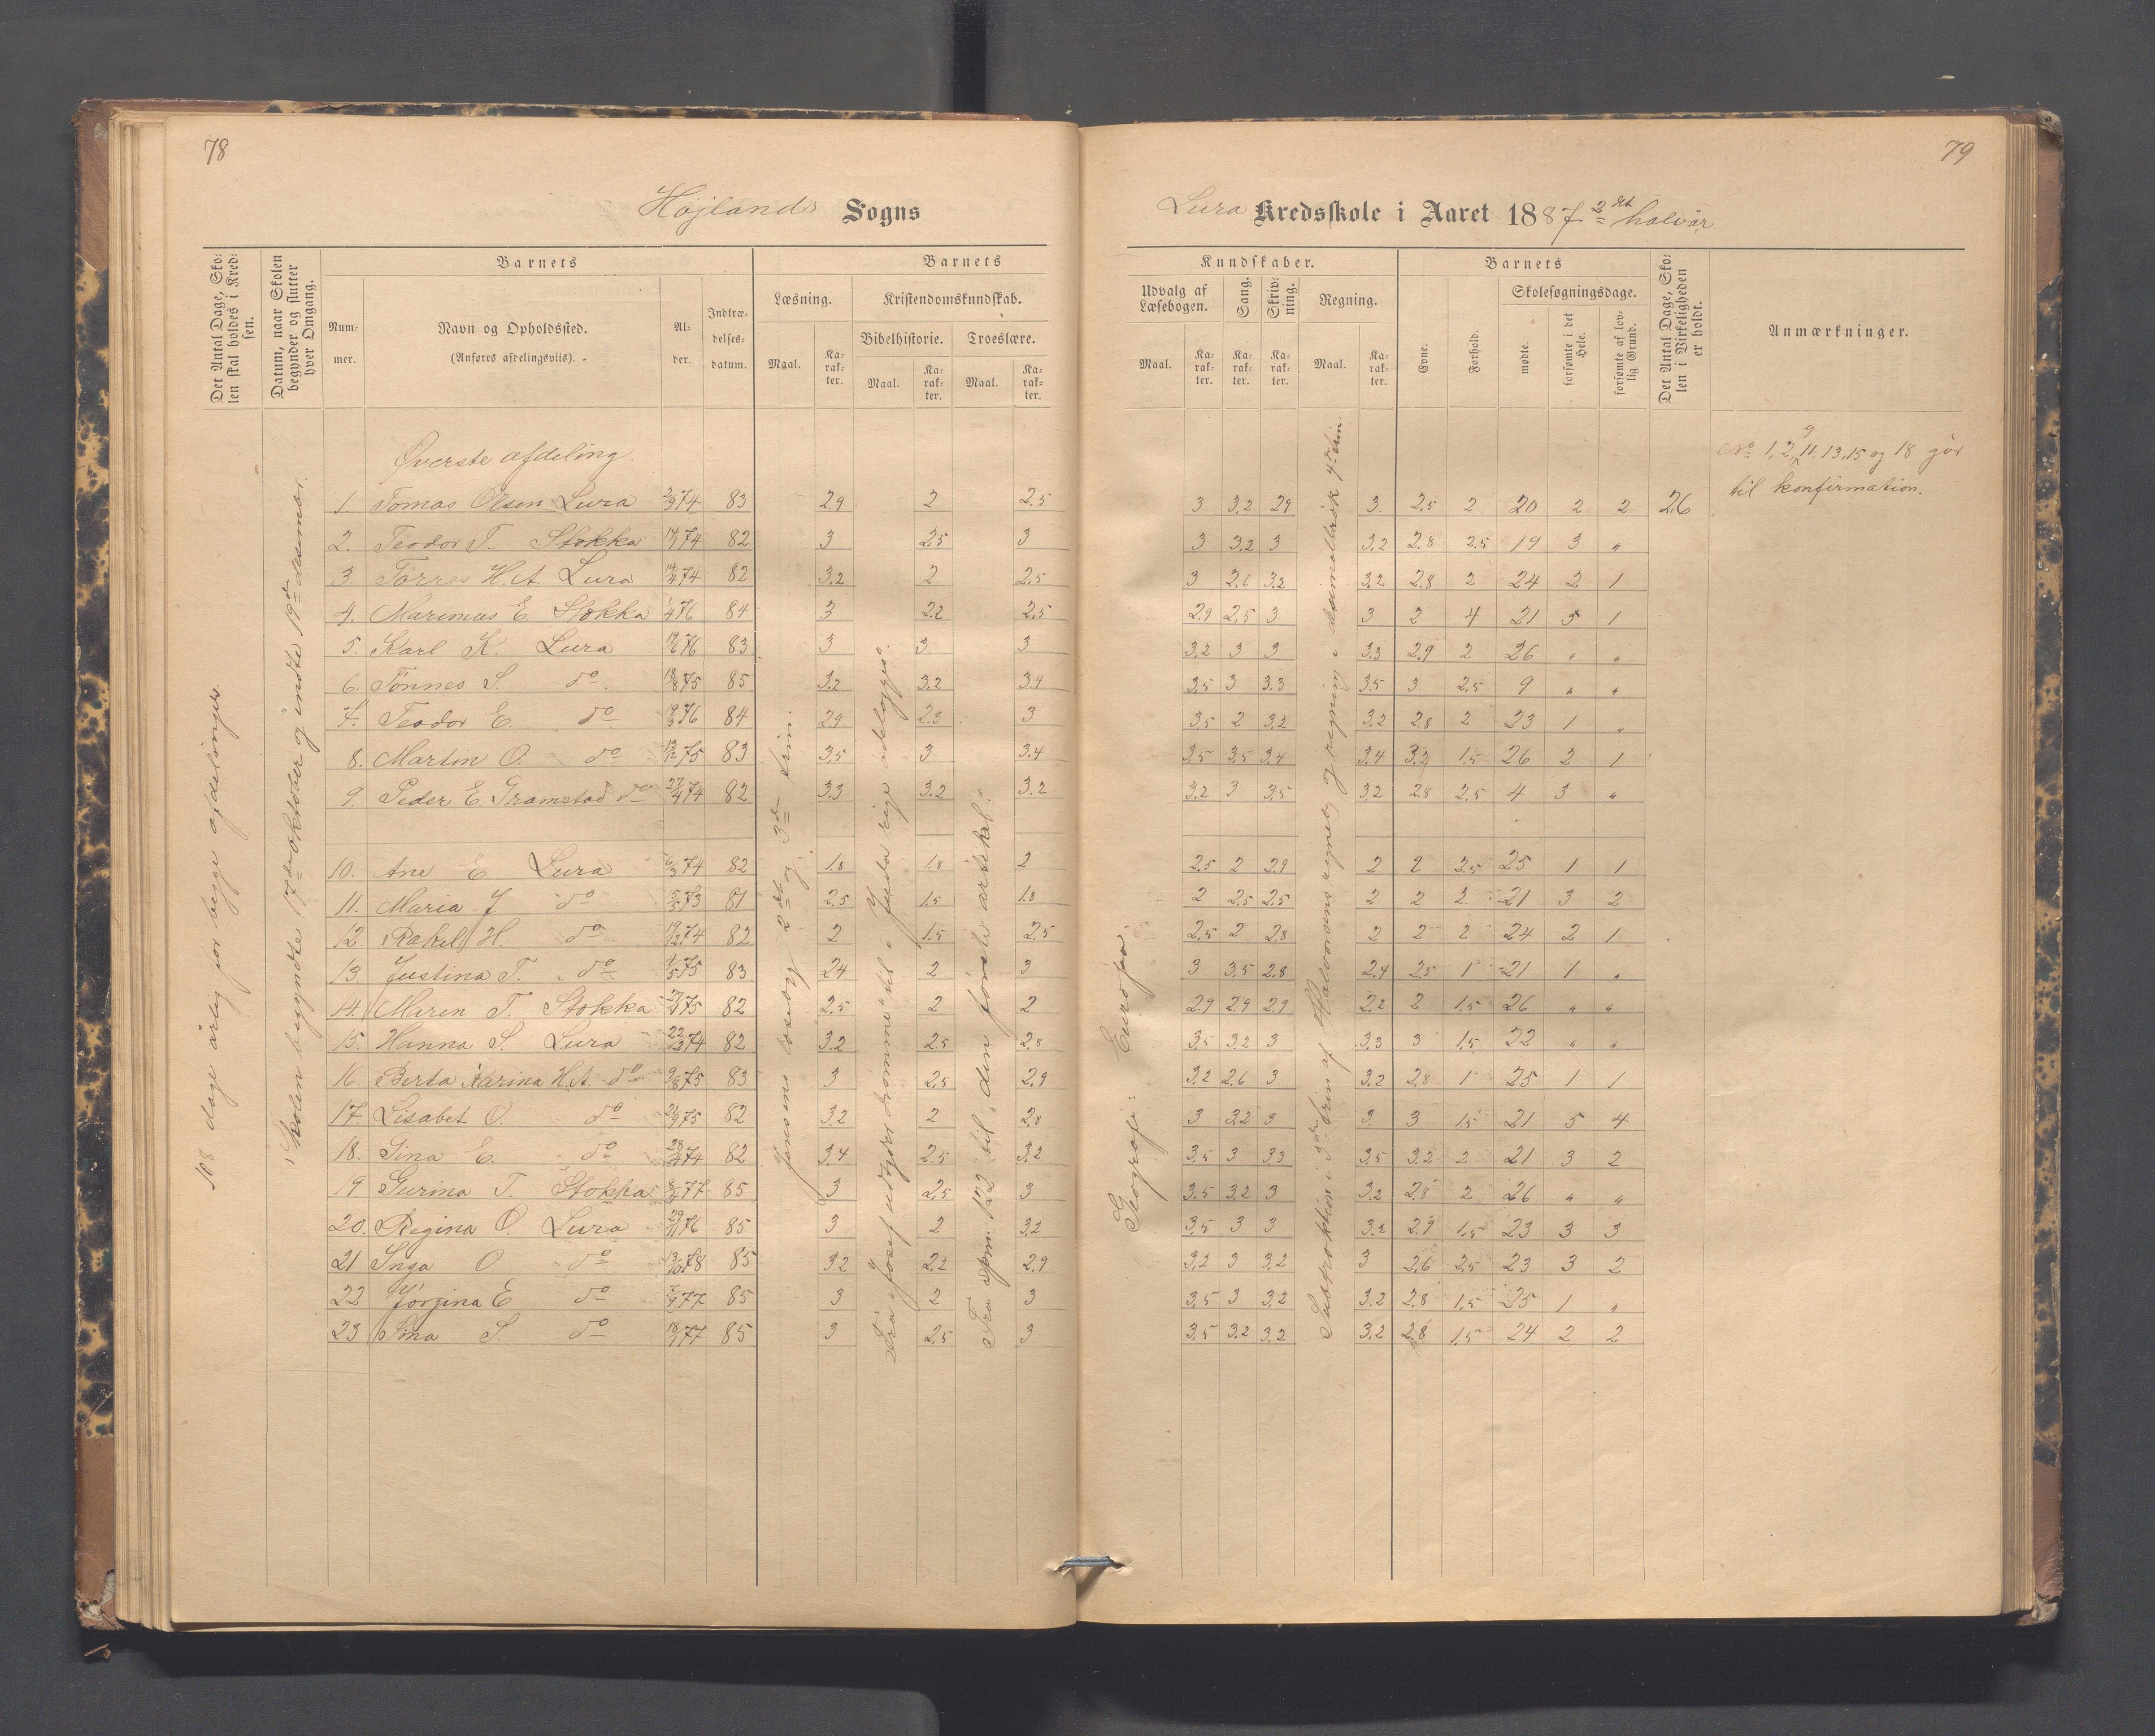 78
Højlands Sogns
Det Antal Dage, Sko-
len skal holdes i Kred-
sen.
Datum, naar Skolen
begynder og slutter
hver Omgang.
Barnets
Num-
mer.
Navn og Opholdssted.
(Anføres afdelingsviis).
Al-
der.
Indtræ-
delses-
datum.
Barnets
Læsning.
Maal.
Ka-
rak-
ter.
Kristendomskundskab.
Bibelhistorie.
Maal.
Ka-
rak-
ter.
Troeslære.
Maal.
Ka-
rak-
ter.
108 dage årlig for begge afdelinger.
Skolen begyndte 17de oktober og endte 19de desember.
Jensens læsebog 2det og 3die trin.
Fra "Josef udtyder drømme" til "Juda rige ødelægges".
Fra spm. 122 til "den første artikel".
Øverste afdeling.
1 Tomas Olsen Lura 74 83 2.9 2 2.5
2. Teodor T. Stokka 74 82 3 2.5 3
3. Tørres H.A. Lura 74 82 3.2 2 2.5
4. Marimus E Stokka 76 84 3 2.2 2.5
5. Karl K. Lura 76 83 3 3 3
6. Tønnes S. do 75 85 3.2 3.2 3.4
7. Teodor E. do 76 84 2.9 2.3 3
8. Martin O. do 75 83 3.5 3 3.4
9. Peder E. Gramstad do 27/4 74 82 3.3 3.2 3.2
10. Ane E. Lura 74 82 1.8 1.8 2
11. Maria J. do 73 81 2.5 1.5 1.8
12. Rakel H. do 74 82 2 1.5 2.5
13. Justina T. do 75 83 2.4 2 3
14. Maren T. Stokka 75 82 2.5 2 2
15. Hanna S. Lura 74 82 3.2 2.5 2.8
16. Berta Karina H.A. do 9/8 75 83 3 2.5 2.9
17. Lisabet O. do 75 82 3.2 2 2.8
18. Sina E. do 74 82 3.4 2.5 3.2
19 Gurina T. Stokka 77 85 3 2.5 3
20. Regina O. Lura 29/11 76 85 3 2 3.2
21 Inga O do 13/10 78 85 3.2 2.2 2.9
22 Jørgina E do 77 85 3 2 3
23 Sina S. do 77 85 3 2.5 3
79
Lura Kredsskole i Aaret 1887 2det halvår.
Kundskaber.
Udvalg af
Læsebogen.
Maal.
Ka-
rak-
ter.
Sang.
Ka-
rak-
ter.
Skriv-
ning.
Ka-
rak-
ter.
Regning.
Maal.
Ka-
rak-
ter.
Barnets
Evne.
Forhold.
Skolesøgningsdage.
mødte.
forsømte i det
Hele.
forsømte af lov-
lig Grund.
Det Antal Dage, Sko-
len i Virkeligheden
er holdt.
Anmærkninger.
Geografi: Europa.
Subtraktion i 3die trin af Halvorsens regnebog og regning i desimalbrøk 4de trin.
No 1, 2, 9, 11, 13, 15 og 18 går
til konfirmation.
3 3.2 2.9 3. 2.5 2 20 2 2 26
3 3.2 3 3.2 2.8 2.5 19 3 "
3 2.6 3.2 3.2 2.8 2 24 2 1
2.9 2.5 3 3 2 4 21 5 1
3.2 3 3 3.3 2.9 2 26 " "
3.5 3 3.3 3.5 3 2.5 9 " "
3.5 2 3.2 3.2 2.8 2 23 1 "
3.5 3.5 3.4 3.4 3.2 1.5 26 2 1
3.2 3 3.5 3.2 2.8 2.5 4 3 "
2.5 2 2.9 2 2 2.5 25 1 1
2 2.5 2.5 2 2 2 21 3 2
2.5 2 2.8 2 2 2 24 2 1
3 3.5 2.8 2.4 2.5 1 21 1 "
2.9 2.9 2.9 2.2 2 1.5 26 " "
3.5 3.2 3 3.3 3 1.5 22 " "
3.2 2.6 3 3.2 2.8 1 25 1 1
3 3.2 3 3. 3 1.5 21 5 4
3.5 3 3.3 3.5 3.2 2 21 3 2
3.5 3.2 3 3.2 2.8 2 26 " "
3.5 3 3 3.2 2.9 1.5 23 3 3
3.2 3 3.2 3 2.6 2.5 23 3 2
3.5 3 3.2 3.2 2.8 1.5 25 1 "
3.5 3.2 3.2 3.2 2.8 1.5 24 2 2